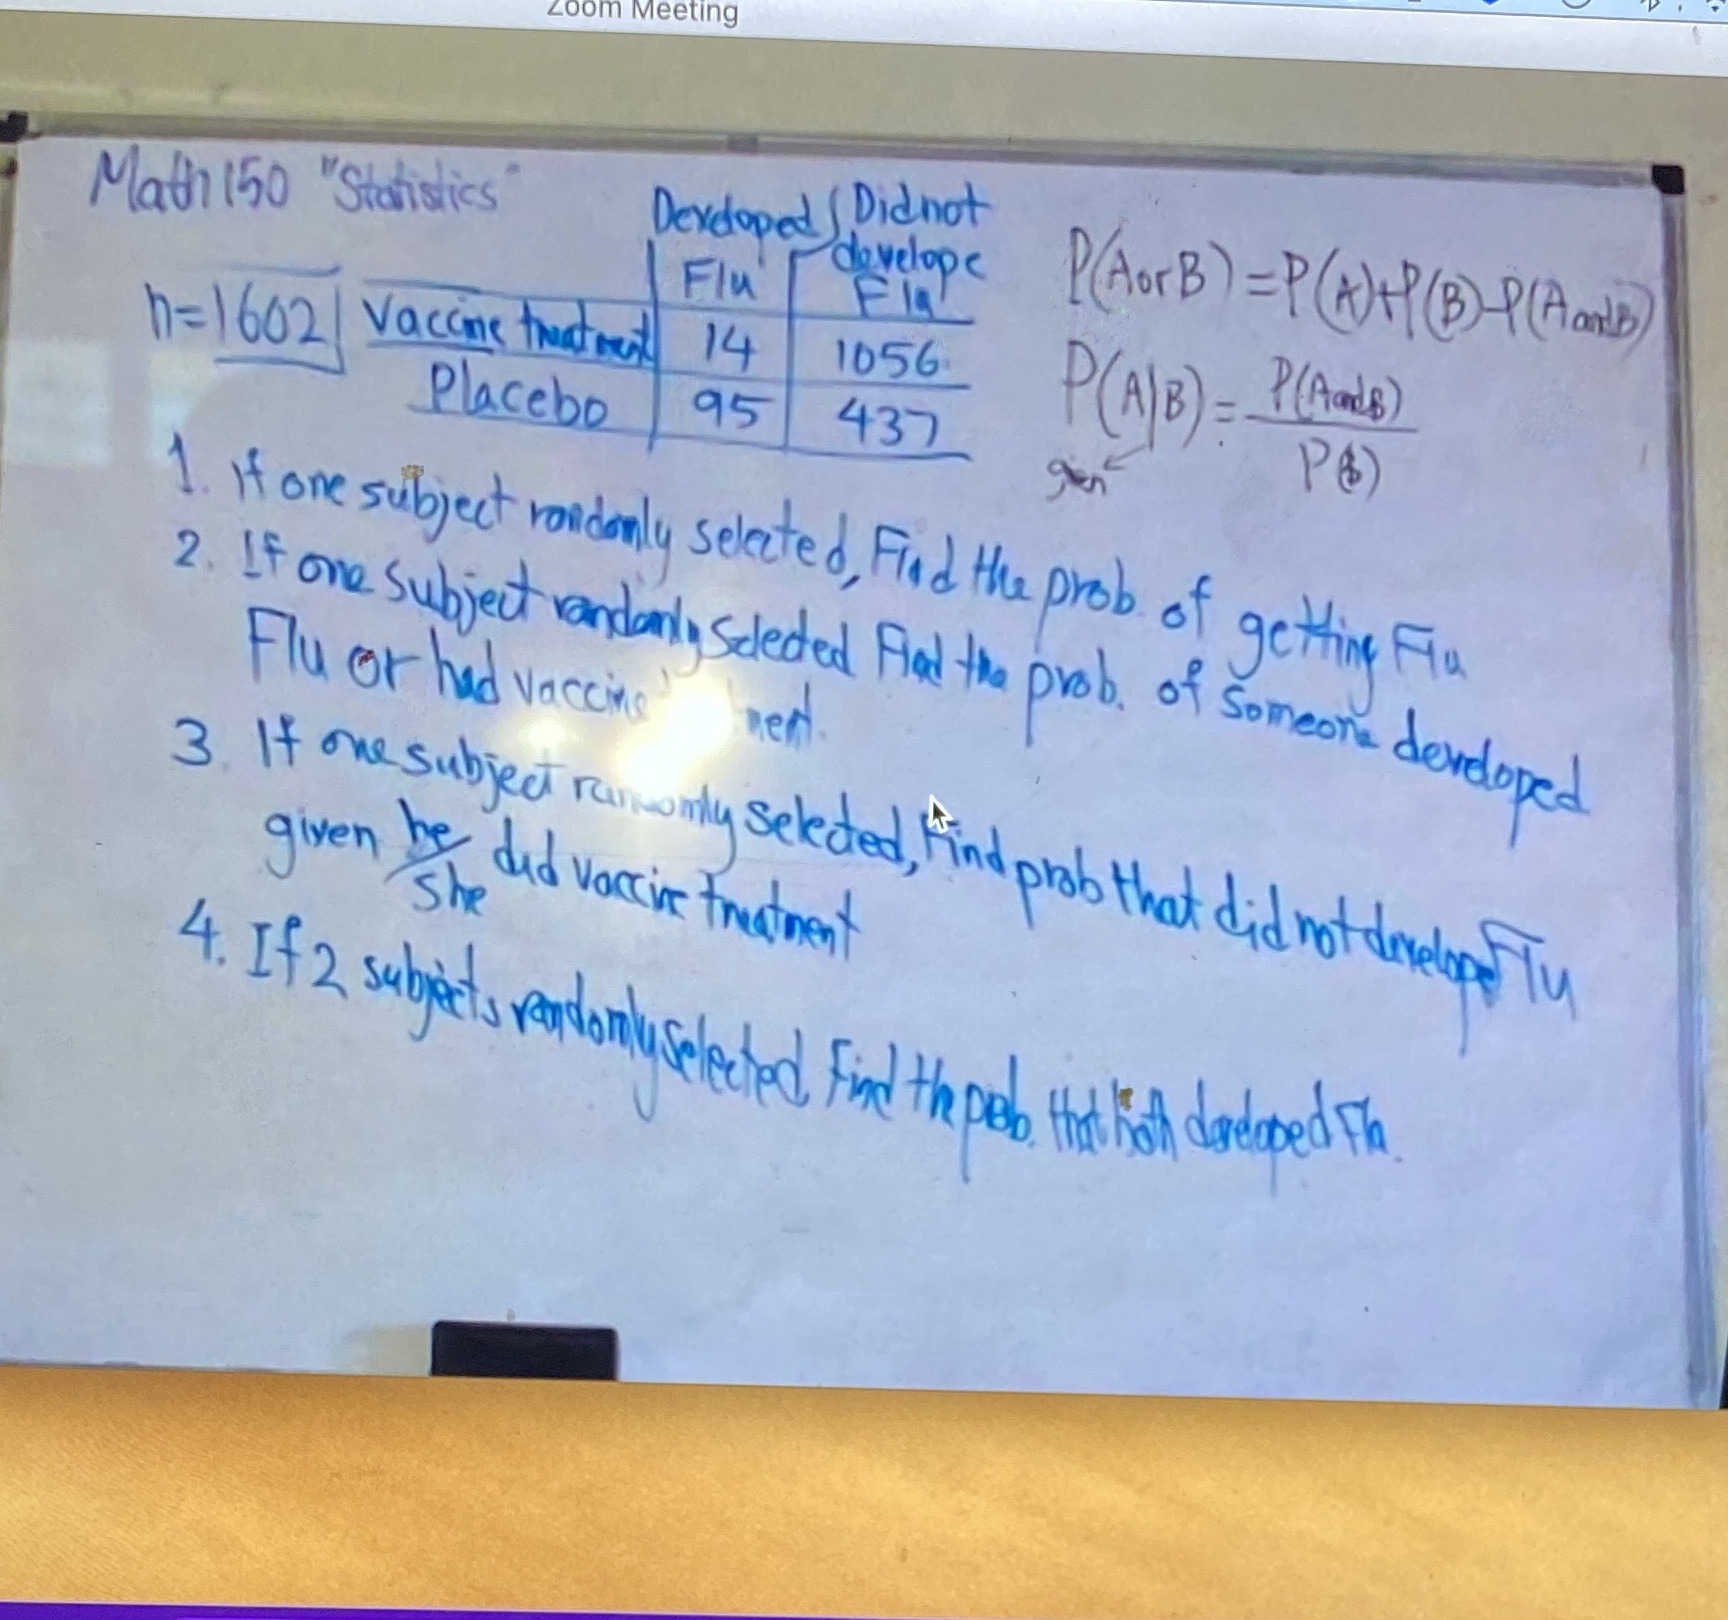 Zoom Meeting
Math 150 "Statistics"
Developed Did not
develope
Flu Flu
n=1602 Vaccine treatment 14 1056
Placebo 95 437
P(A or B) = P(A)+P(B)-P(A and B)
P(A|B) = P(A and B)
P(B)
1. If one subject randomly selected, Find the prob. of getting Flu
2. If one subject randomly selected Find the prob. of someone developed
Flu or had vaccine ment.
3. If one subject randomly selected, Find prob that did not develope Flu
given he/she did vaccine treatment
4. If 2 subjects randomly selected Find the prob. that both developed Flu.